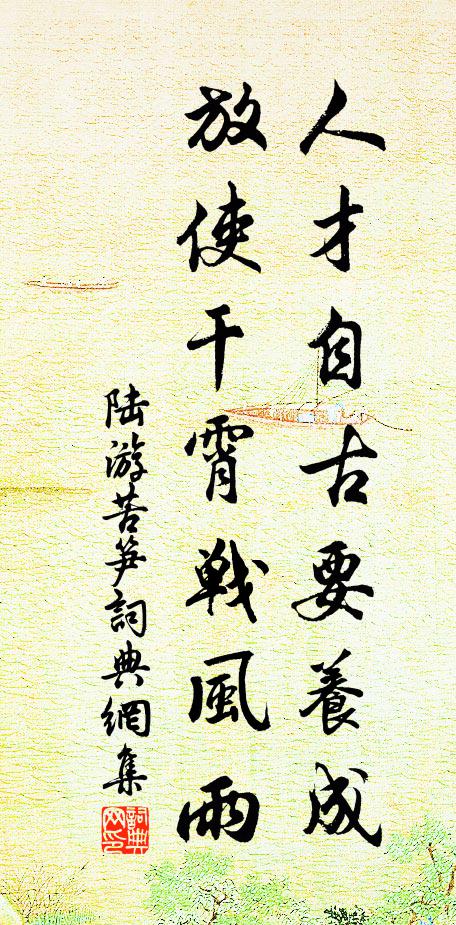 人才自古要養成
放使干霄戰風雨
陸游苦笋詞典網集
詞典網印